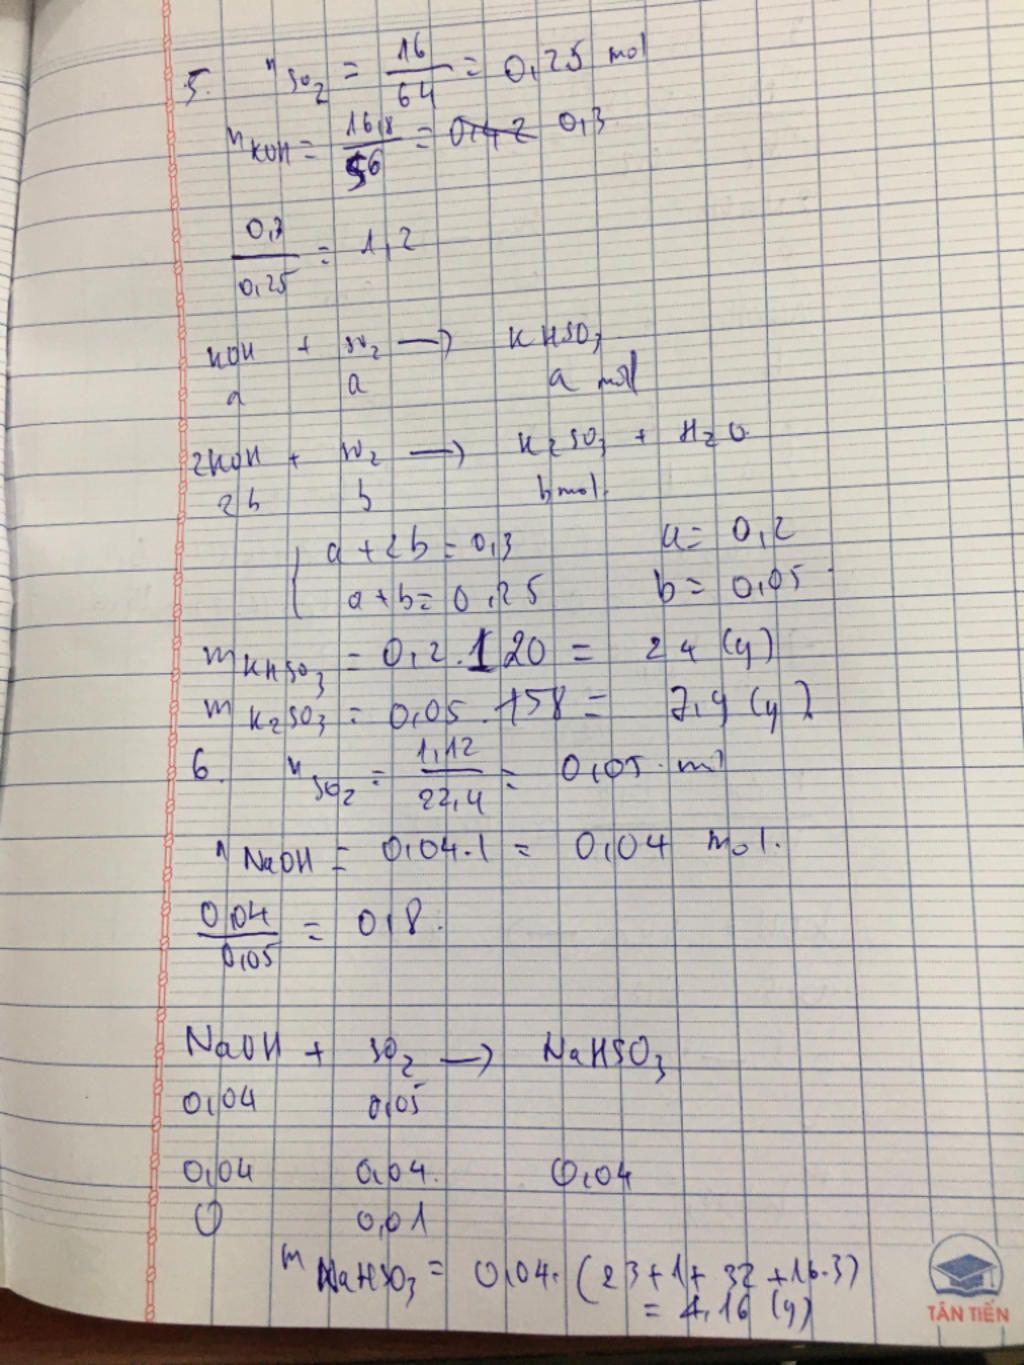 5. nSO2 = 16/64 = 0,25 mol
nKOH = 16,8/56 = 0,42 0,3
0,3/0,25 = 1,2
KOH + SO2 → KHSO3
a a a mol
2KOH + SO2 → K2SO3 + H2O
2b b b mol
a + 2b = 0,3 a = 0,2
a + b = 0,25 b = 0,05
mKHSO3 = 0,2.120 = 24 (g)
mK2SO3 = 0,05.158 = 7,9 (g)
6. nSO2 = 1,12/22,4 = 0,05 mol
nNaOH = 0,04.1 = 0,04 mol.
0,04/0,05 = 0,8.
NaOH + SO2 → NaHSO3
0,04 0,05
0,04 0,04. 0,04
0 0,01
mNaHSO3 = 0,04.(23+1+32+16.3)
= 4,16 (g)
TÂN TIẾN